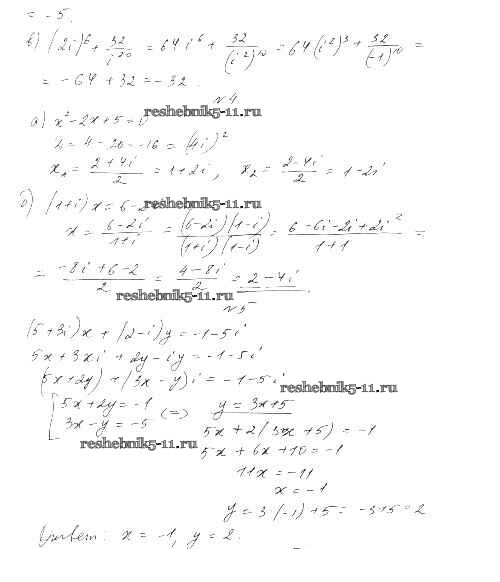 = -5.
в) (2i)⁶ + 32/i²⁰ = 64i⁶ + 32/(i²)¹⁰ = 64(i²)³ + 32/(-1)¹⁰ =
= -64 + 32 = -32.
№4
а) x² - 2x + 5 = 0
reshebnik5-11.ru
D = 4 - 20 = -16 = (4i)²
x₁ = (2+4i)/2 = 1+2i, x₂ = (2-4i)/2 = 1-2i
б) (1+i)x = 6-2i
reshebnik5-11.ru
x = (6-2i)/(1+i) = (6-2i)(1-i)/(1+i)(1-i) = (6-6i-2i+2i²)/(1+1) =
= (-8i+6-2)/2 = (4-8i)/2 = 2-4i
reshebnik5-11.ru
№5
(5+3i)x + (2-i)y = -1-5i
5x + 3xi + 2y - iy = -1-5i
(5x+2y) + (3x-y)i = -1-5i
reshebnik5-11.ru
[5x+2y = -1 (=) y = 3x+5
3x-y = -5
reshebnik5-11.ru
5x + 2(3x+5) = -1
5x + 6x + 10 = -1
11x = -11
x = -1
y = 3(-1)+5 = -3+5 = 2
Ответ: x = -1, y = 2.